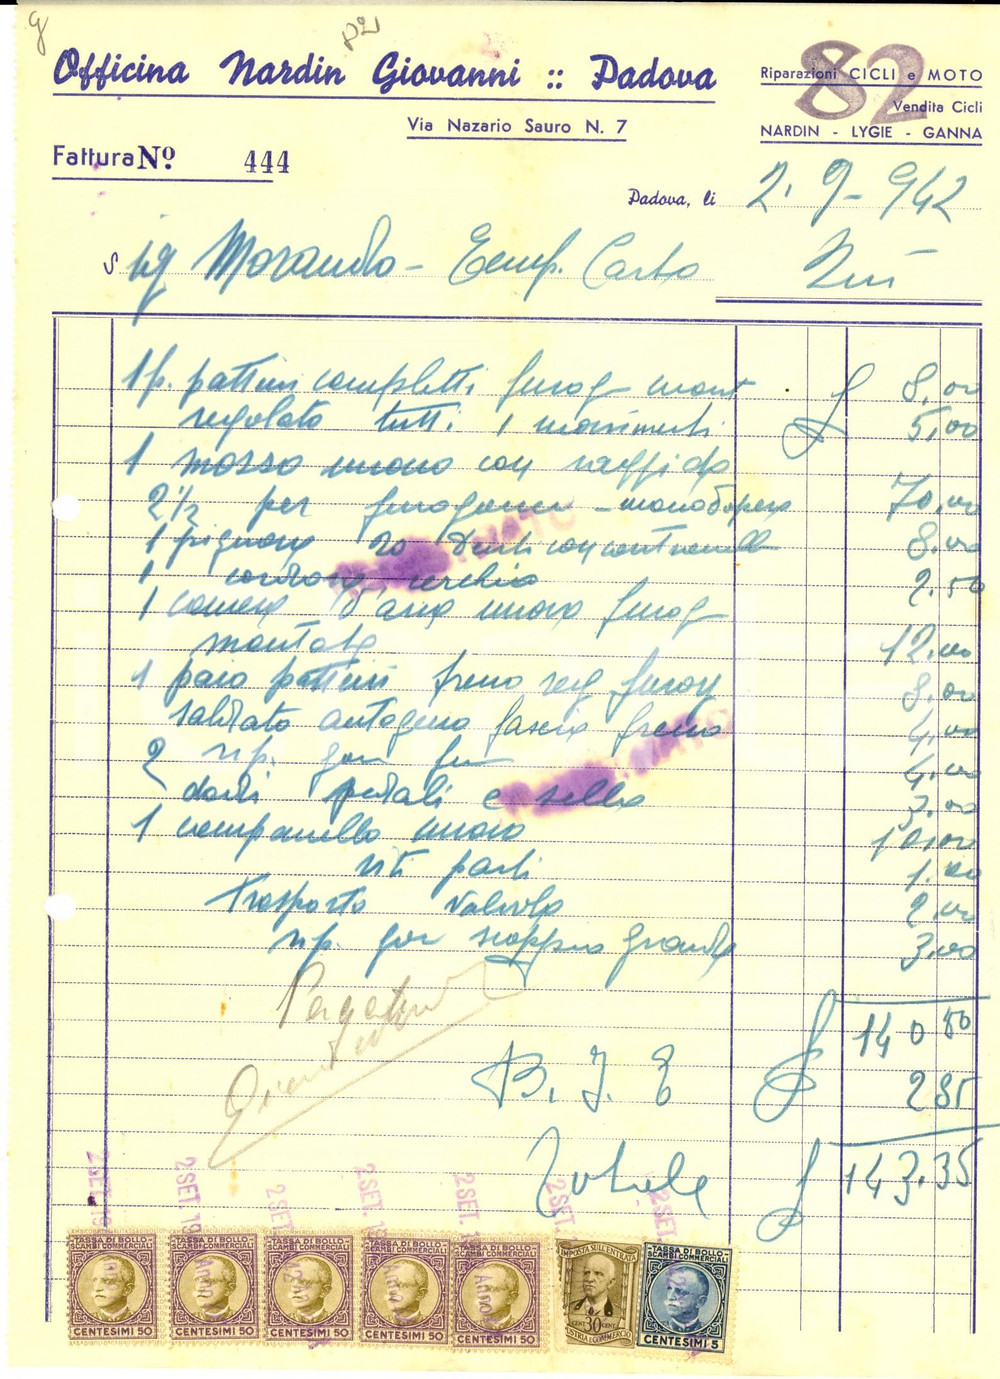 g
82
Officina Nardin Giovanni :: Padova
Riparazioni CICLI e MOTO
Vendita Cicli
NARDIN - LYGIE - GANNA
Via Nazario Sauro N. 7
Fattura Nº 444
Padova, li 2. 9 - 942
Sig Morandlo -
1 p. pattini completti furog mont 8,00
regolato tutti i movimenti £ 5,00
1 mozzo nuovo con raggi da
2 1/2 per furgone - manodopera 70,00
1 pignone 20 denti con 8.00
1 vecchio 2.50
1 camera d'aria nuova furog
montata 12.00
1 paio pattini freno furog 8.00
saldato autogeno fascia freno 4,00
2 rip. gom 4.00
dadi pedali e sella 3.00
1 campanello nuovo 10,00
viti parti 1.00
Trasporto valvola 2,00
rip. gom scoppio grande 3,00
£ 140 50
B. I. E £ 2 85
Totale £ 143.35
2 SET. 19
2 SET. 19
2 SET.
2 SET. 1
2 SET. 1
2 SET.
2 SET.
TASSA DI BOLLO SCAMBI COMMERCIALI CENTESIMI 50
TASSA DI BOLLO SCAMBI COMMERCIALI CENTESIMI 50
TASSA DI BOLLO SCAMBI COMMERCIALI CENTESIMI 50
TASSA DI BOLLO SCAMBI COMMERCIALI CENTESIMI 50
TASSA DI BOLLO SCAMBI COMMERCIALI CENTESIMI 50
IMPOSTA SULL'ENTRATA CENT 30 CENT
TASSA DI BOLLO SCAMBI COMMERCIALI CENTESIMI 5